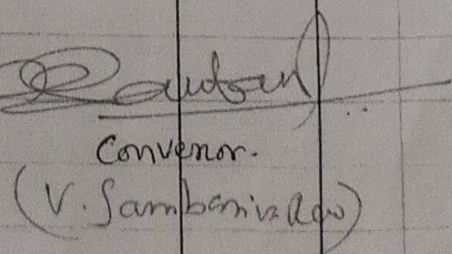 Convenor.
(V. Sambasiva Rao)